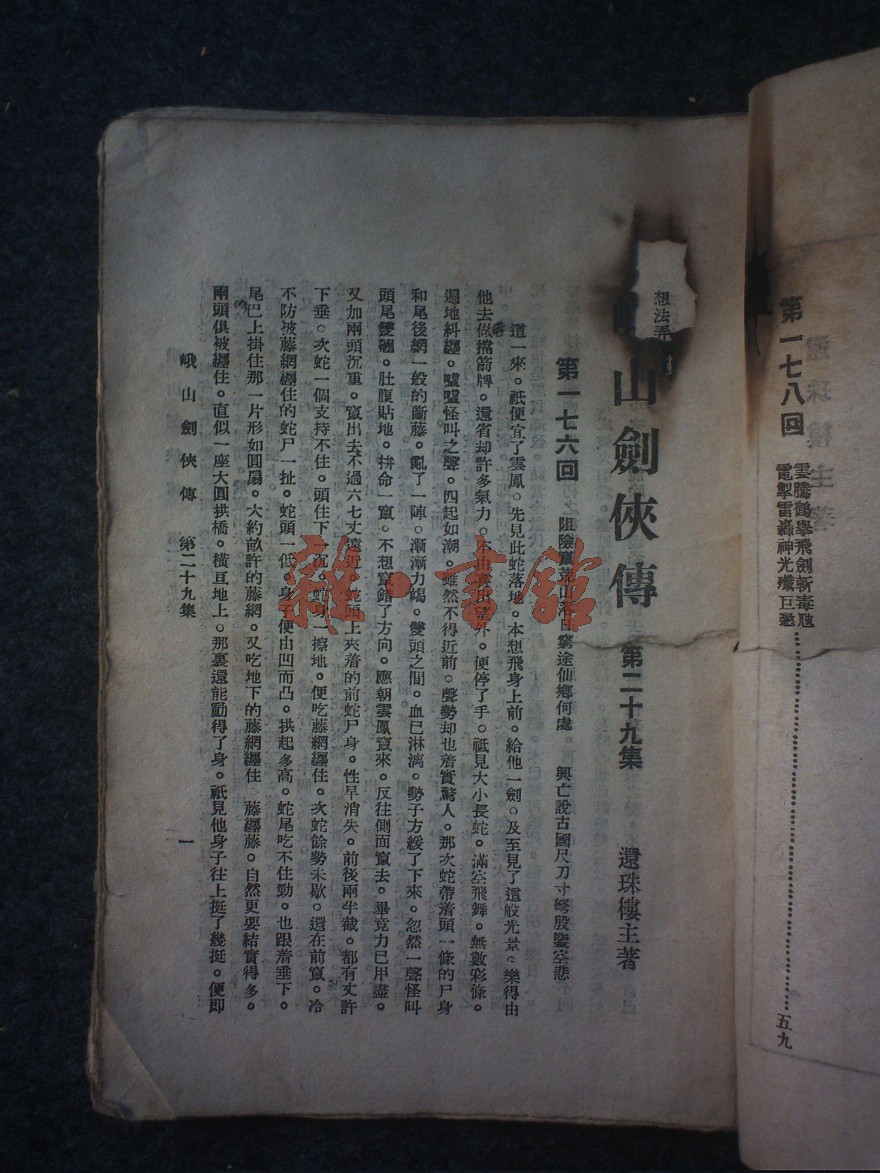 第一七八回
雲騰鶴舉飛劍斬毒虺
電掣雷轟神光殲巨憝
五九
想法弄
山劍俠傳 第二十九集 還珠樓主著
第一七六回 阻險 荒山落日窮途仙鄉何處 興亡說古國尺刀寸弩殷鑒空悲
這一來。祇便宜了雲鳳。先見此蛇落地。本想飛身上前。給他一劍。及至見了這般光景。樂得由
他去做擋箭牌。還省却許多氣力。 望外。便停了手。祇見大小長蛇。滿空飛舞。無數彩條。
遍地糾纏。噓噓怪叫之聲。四起如潮。雖然不得近前。聲勢却也着實驚人。那次蛇帶着頭一條的尸身
和尾後網一般的斷藤。亂了一陣。漸漸力竭。雙頭之間。血已淋漓。勢子方緩了下來。忽然一聲怪叫
頭尾雙翹。肚腹貼地。拼命一竄。不想竄錯了方向。應朝雲鳳竄來。反往側面竄去。畢竟力已用盡。
又加兩頭沉重。竄出去不過六七丈遠近。蛇頭上夾着的前蛇尸身。性早消失。前後兩半截。都有丈許
下垂。次蛇一個支持不住。頭往下一沉。蛇身一擦地。便吃藤網纏住。次蛇餘勢未歇。還在前竄。冷
不防被藤網纏住的蛇尸一扯。蛇頭一低。身子便由凹而凸。拱起多高。蛇尾吃不住勁。也跟着垂下。
尾巴上掛住那一片形如圓扇。大約畝許的藤網。又吃地下的藤網纏住 藤纏藤。自然更要結實得多。
兩頭俱被纏住。直似一座大圓拱橋。橫亘地上。那裏還能動得了身。祇見他身子往上挺了幾挺。便即
峨山劍俠傳 第二十九集 一
雜·書館